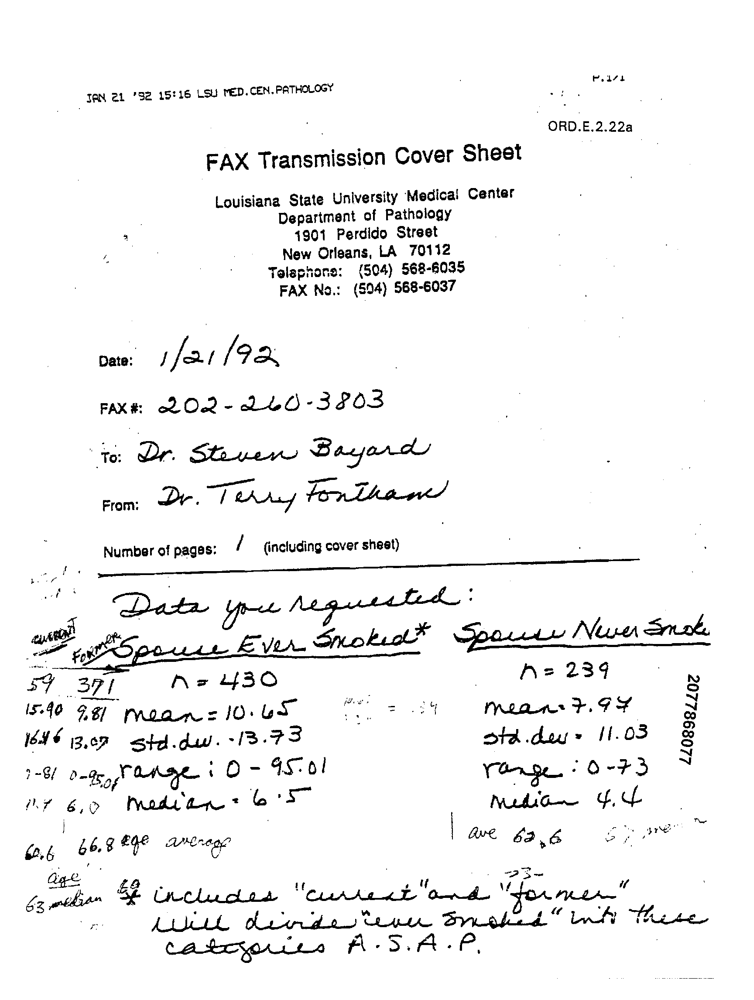 JAN 21 '92 15:16 LSU MED.CEN.PATHOLOGY
P.1/1
ORD.E.2.22a
FAX Transmission Cover Sheet
Louisiana State University Medical Center
Department of Pathology
1901 Perdido Street
New Orleans, LA 70112
Telephone: (504) 568-6035
FAX No.: (504) 568-6037
Date: 1/21/92
FAX #: 202-260-3803
To: Dr. Steven Bayard
From: Dr. Terry Fontham
Number of pages: 1 (including cover sheet)
Data you requested:
current Former Spouse Ever Smoked* Spouse Never Smoke
59 371 n = 430 n = 239
15.90 9.81 mean = 10.65 mean = 7.97
16.46 13.07 std.dev. - 13.73 std.dev = 11.03
0-95.01 range: 0 - 95.01 range: 0-73
11.7 6.0 median = 6.5 median 4.4
60.6 66.8 age average ave 62.6
age
63 median * includes "current" and "former"
Will divide "ever smoked" into these
categories A.S.A.P.
2077868077